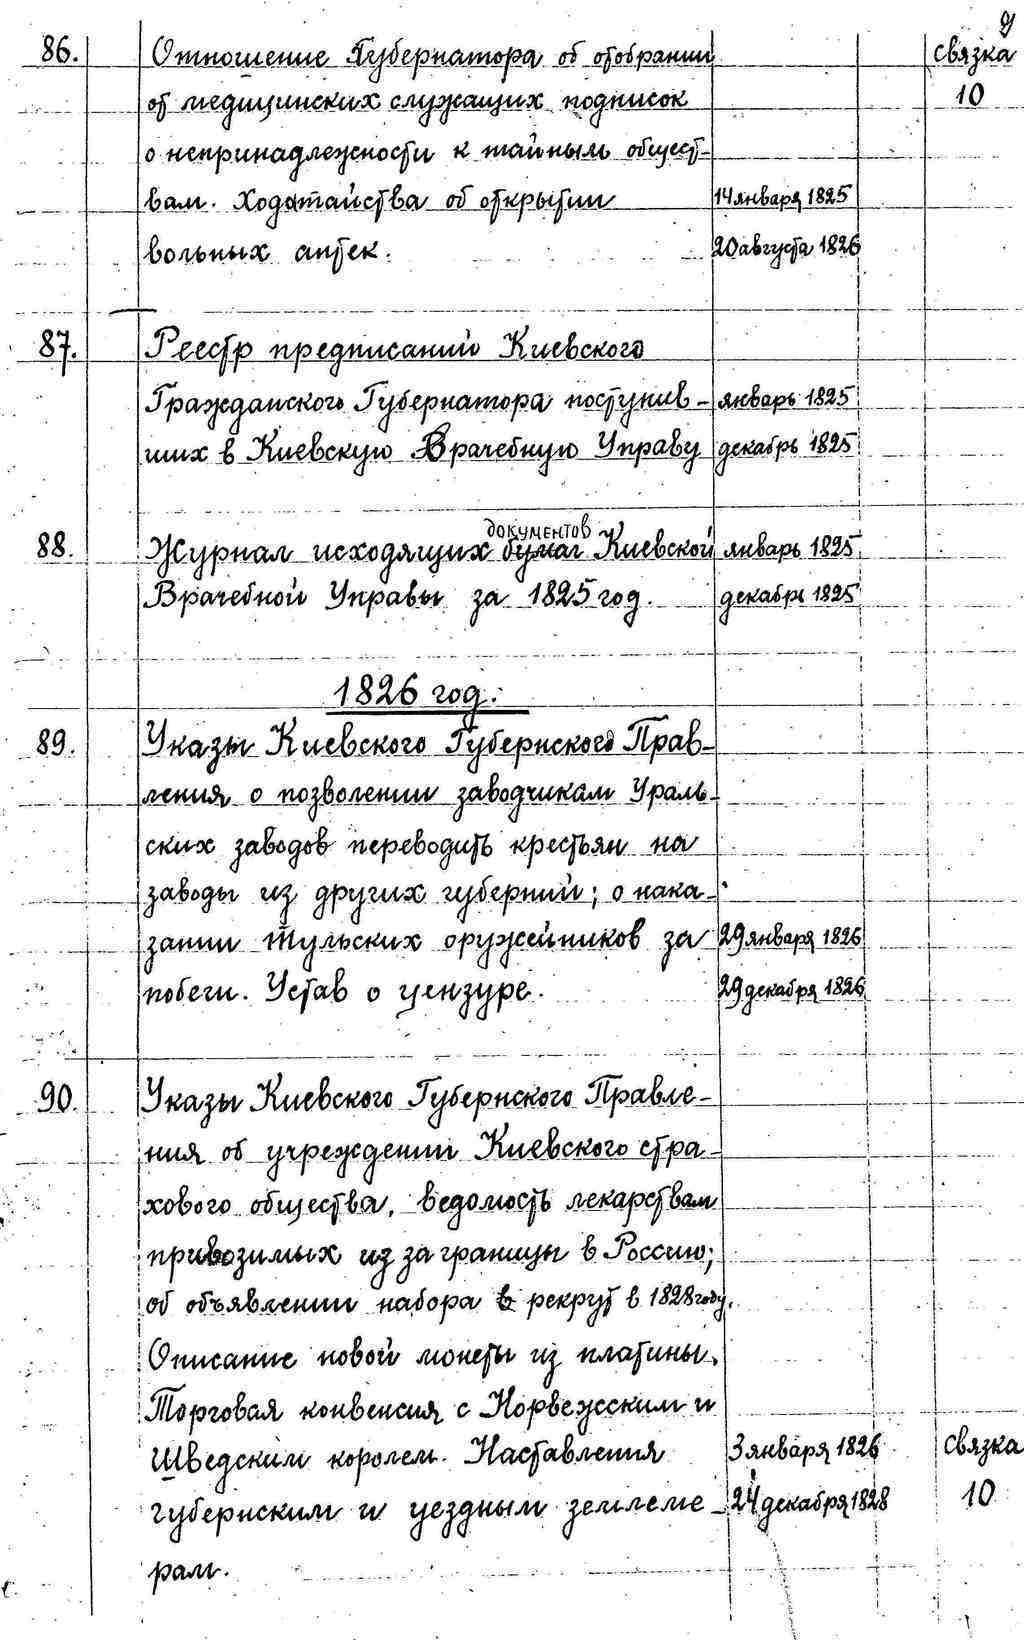 9
86. Отношение Губернатора об отобрании связка
от медицинских служащих подписок 10
о непринадлежности к тайным общест-
вам. Ходатайства об открытии 14 января 1825
вольных аптек. 20 августа 1826
87. Реестр предписаний Киевского
Гражданского Губернатора поступив- январь 1825
ших в Киевскую Врачебную Управу декабрь 1825
документов
88. Журнал исходящих бумаг Киевской январь 1825
Врачебной Управы за 1825 год. декабрь 1825
1826 год.
89. Указы Киевского Губернского Прав-
ления о позволении заводчикам Ураль-
ских заводов переводить крестьян на
заводы из других губерний; о нака-
зании тульских оружейников за 29 января 1826
побеги. Устав о цензуре. 29 декабря 1826
90. Указы Киевского Губернского Правле-
ния об учреждении Киевского стра-
хового общества, ведомость лекарствам
привозимых из за границы в Россию;
об объявлении набора в рекрут в 1828 году.
Описание новой монеты из платины.
Торговая конвенсия с Норвежским и
Шведским королем. Наставления 3 января 1826 связка
губернским и уездным землеме- 24 декабря 1828 10
рам.